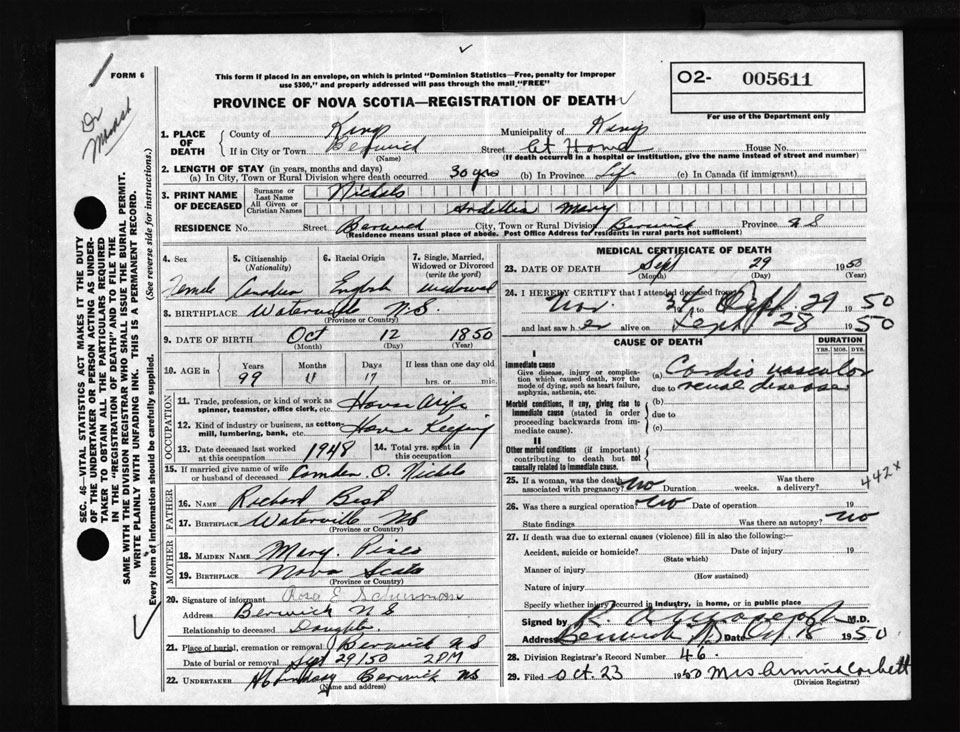 FORM 6
Dr
This form if placed in an envelope, on which is printed "Dominion Statistics—Free, penalty for improper
use $300," and properly addressed will pass through the mail "FREE"
O2- 005611
For use of the Department only
PROVINCE OF NOVA SCOTIA—REGISTRATION OF DEATH
SEC. 46—VITAL STATISTICS ACT MAKES IT THE DUTY
OF THE UNDERTAKER OR PERSON ACTING AS UNDER-
TAKER TO OBTAIN ALL THE PARTICULARS REQUIRED
IN THE "REGISTRATION OF DEATH" AND TO FILE THE
SAME WITH THE DIVISION REGISTRAR WHO SHALL ISSUE THE BURIAL PERMIT.
WRITE PLAINLY WITH UNFADING INK. THIS IS A PERMANENT RECORD.
Every item of information should be carefully supplied. (See reverse side for instructions.)
1. PLACE OF DEATH County of Kings Municipality of Kings
If in City or Town Berwick Street At Home House No.
(Name) (If death occurred in a hospital or institution, give the name instead of street and number)
2. LENGTH OF STAY (in years, months and days)
(a) In City, Town or Rural Division where death occurred 30 yrs (b) In Province Life (c) In Canada (if immigrant)
3. PRINT NAME OF DECEASED Surname or Last Name Nichols
All Given or Christian Names Mary
RESIDENCE No. Street Berwick City, Town or Rural Division Berwick Province N S
(Residence means usual place of abode. Post Office Address for residents in rural parts not sufficient)
4. Sex 5. Citizenship (Nationality) 6. Racial Origin 7. Single, Married, Widowed or Divorced (write the word)
Female Canadian English widowed
8. BIRTHPLACE Waterville N.S.
(Province or Country)
9. DATE OF BIRTH Oct 12 1850
(Month) (Day) (Year)
10. AGE in Years Months Days If less than one day old
99 11 17 hrs. or min.
OCCUPATION
11. Trade, profession or kind of work as spinner, teamster, office clerk, etc. House Wife
12. Kind of industry or business, as cotton mill, lumbering, bank, etc. House Keeping
13. Date deceased last worked at this occupation 1948 14. Total yrs. spent in this occupation
15. If married give name of wife or husband of deceased Camden O. Nichols
FATHER
16. NAME Richard Best
17. BIRTHPLACE Waterville NS
(Province or Country)
MOTHER
18. MAIDEN NAME Mary Pineo
19. BIRTHPLACE Nova Scotia
(Province or Country)
20. Signature of informant Rosa E Schurman
Address Berwick N S
Relationship to deceased Daughter
21. Place of burial, cremation or removal Berwick NS
Date of burial or removal Sept 29/50 2 PM
22. UNDERTAKER Berwick NS
(Name and address)
MEDICAL CERTIFICATE OF DEATH
23. DATE OF DEATH Sept 29 1950
(Month) (Day) (Year)
24. I HEREBY CERTIFY that I attended deceased from
Nov to Sept. 29 1950
and last saw her alive on Sept 28 1950
CAUSE OF DEATH DURATION
YRS. MOS. DYS.
I
Immediate cause
Give disease, injury or complication which caused death, NOT the mode of dying, such as heart failure, asphyxia, asthenia, etc.
(a) Cardio vascular
due to renal disease
Morbid conditions, if any, giving rise to immediate cause (stated in order proceeding backwards from immediate cause).
(b)
due to
(c)
II
Other morbid conditions (if important) contributing to death but not causally related to immediate cause.
442x
25. If a woman, was the death associated with pregnancy? No Duration weeks. Was there a delivery?
26. Was there a surgical operation? No Date of operation 19
State findings Was there an autopsy? no
27. If death was due to external causes (violence) fill in also the following:—
Accident, suicide or homicide? Date of injury 19
(State which)
Manner of injury
(How sustained)
Nature of injury
Specify whether injury occurred in industry, in home, or in public place
Signed by M.D.
Address Berwick NS Date Oct 18 1950
28. Division Registrar's Record Number 46.
29. Filed Oct. 23 1950 Mrs Corbett
(Division Registrar)